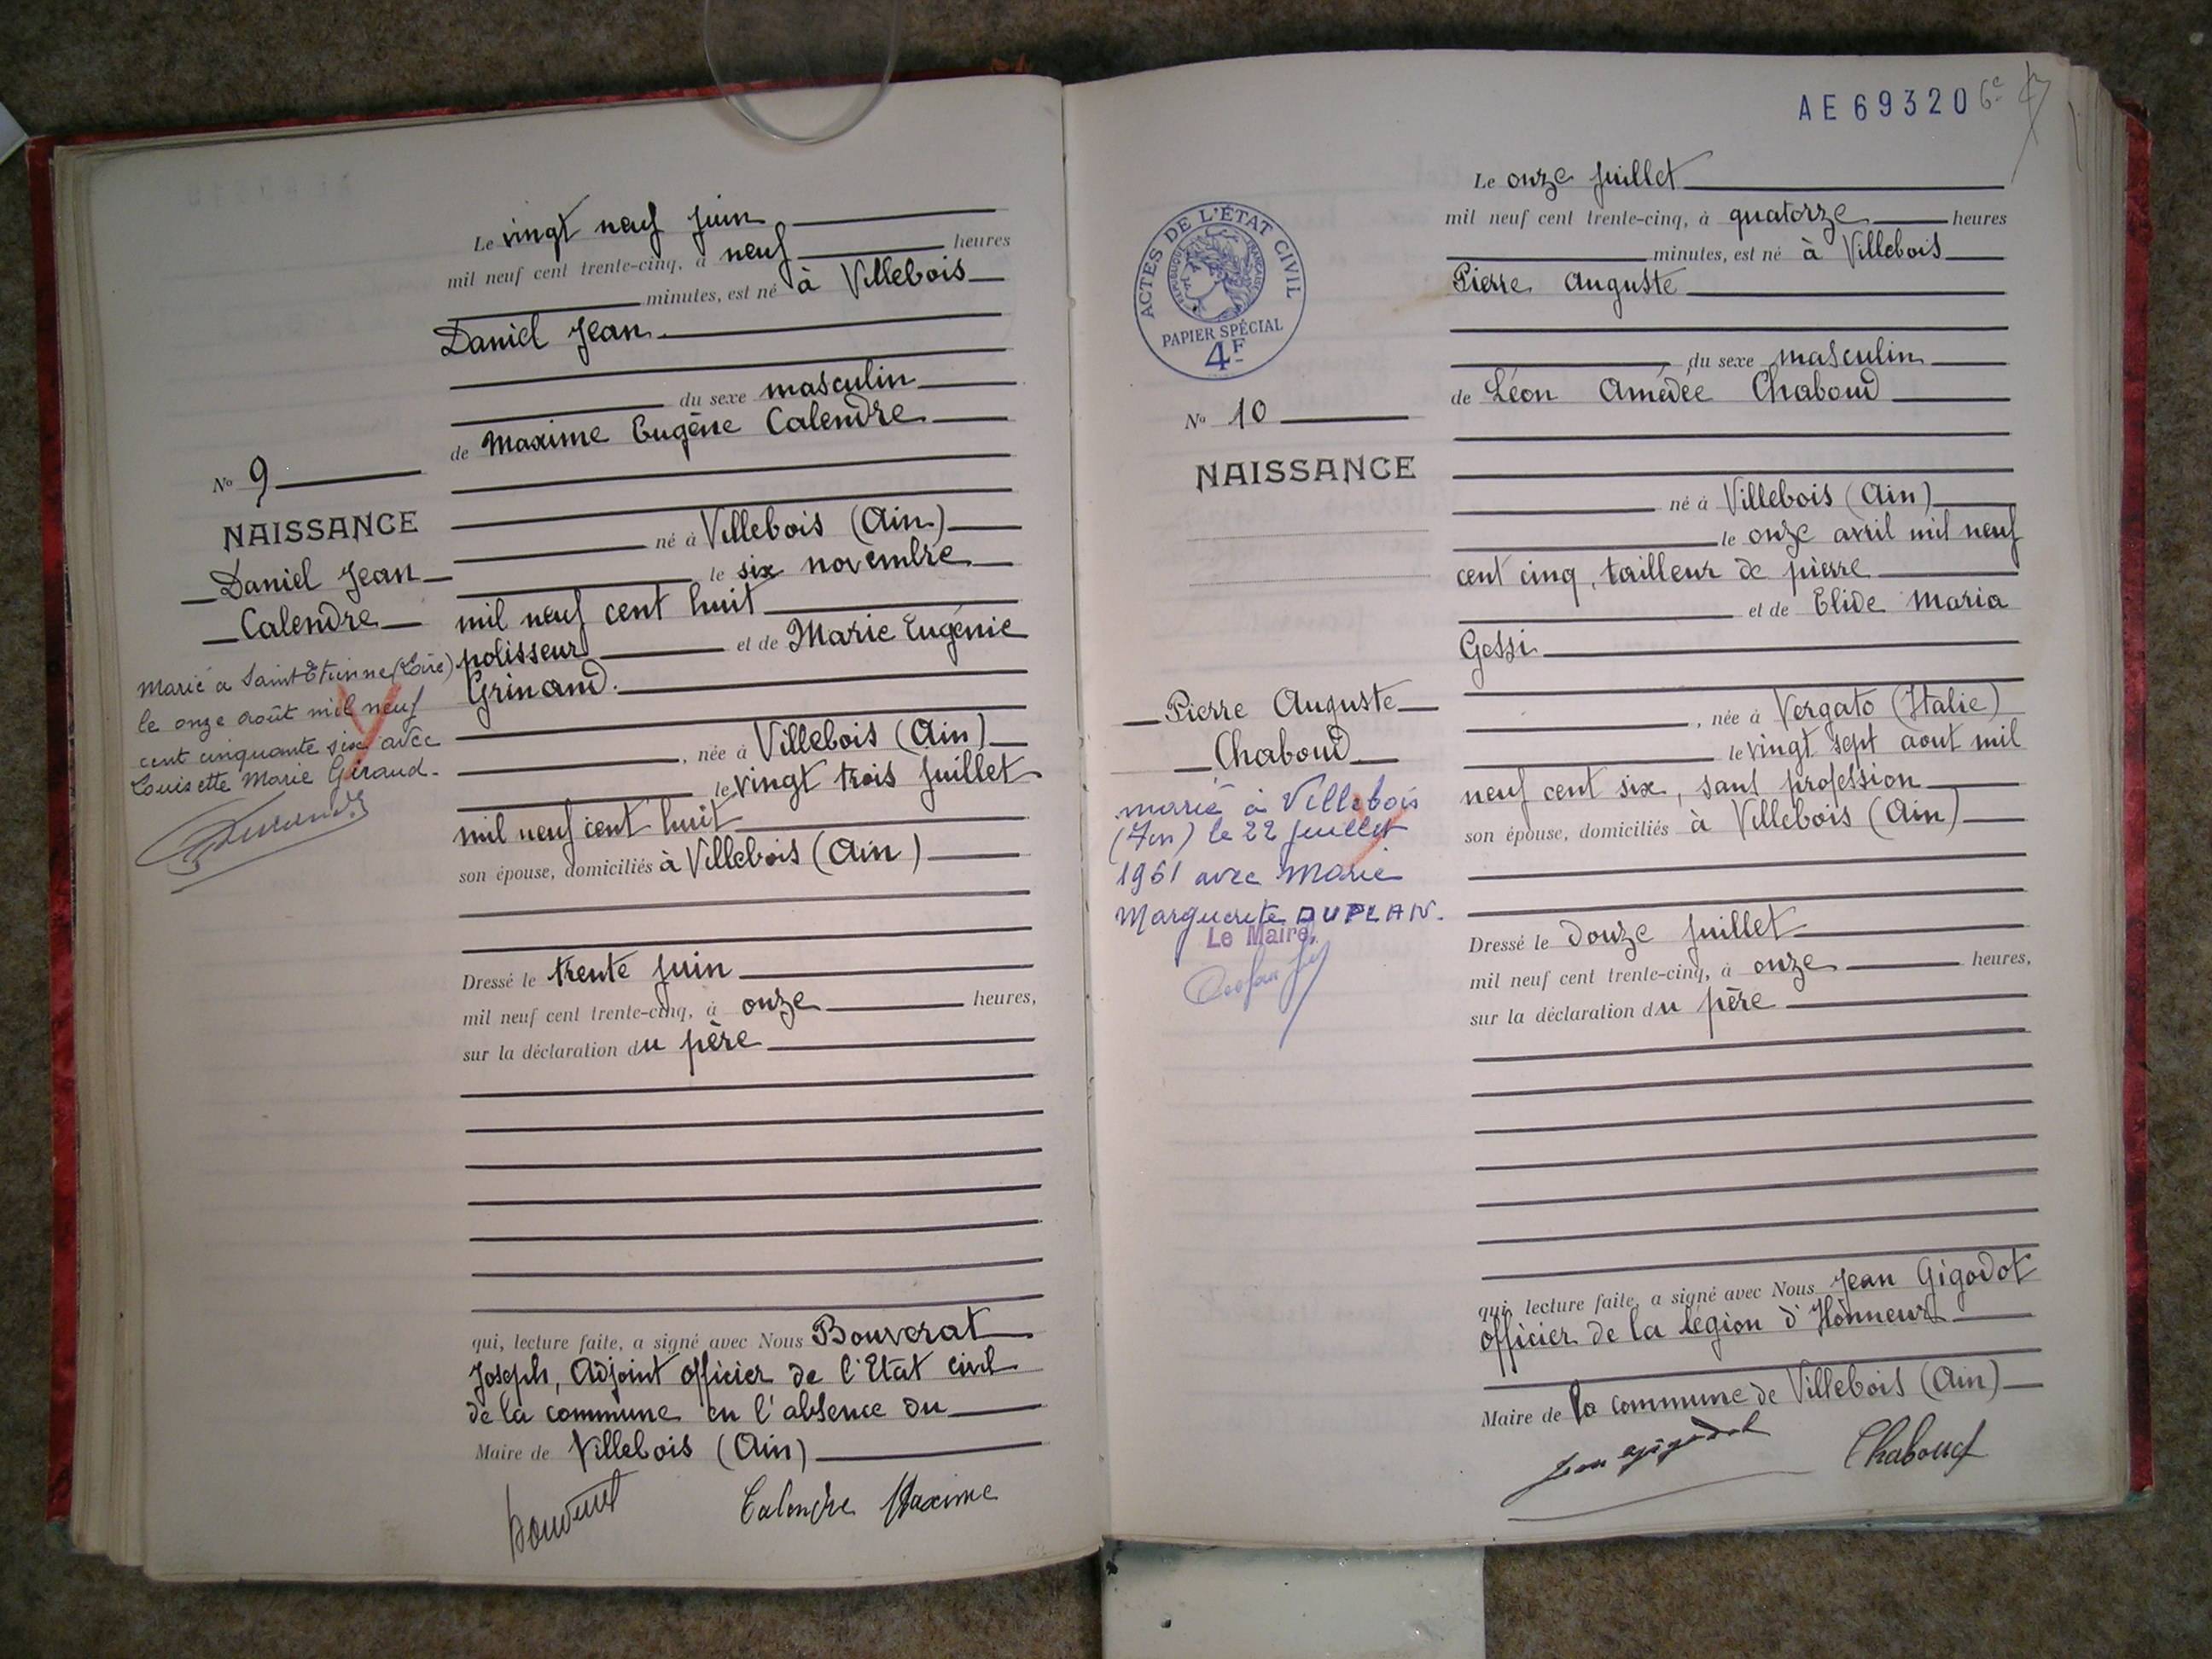 Le vingt neuf juin
mil neuf cent trente-cinq, à neuf heures
minutes, est né à Villebois
Daniel Jean
du sexe masculin
de Maxime Eugène Calendre
né à Villebois (Ain)
le six novembre
mil neuf cent huit
polisseur et de Marie Eugénie
Grinand.
, née à Villebois (Ain)
le vingt trois juillet
mil neuf cent huit
son épouse, domiciliés à Villebois (Ain)
Dressé le trente juin
mil neuf cent trente-cinq, à onze heures,
sur la déclaration du père
qui, lecture faite, a signé avec Nous Bouverat
Joseph, Adjoint officier de l'Etat civil
de la commune en l'absence du
Maire de Villebois (Ain)
Calendre Maxime
No 9
NAISSANCE
Daniel Jean
Calendre
Marié a Saint Etienne (Loire)
le onze août mil neuf
cent cinquante six avec
Louisette Marie Giraud.
AE 69320 6e
ACTES DE L'ÉTAT CIVIL
RÉPUBLIQUE FRANÇAISE
PAPIER SPÉCIAL
4F
No 10
NAISSANCE
Pierre Auguste
Chaboud
marié à Villebois
(Ain) le 22 juillet
1961 avec Marie
Marguerite DUPLAN.
Le Maire,
Le onze juillet
mil neuf cent trente-cinq, à quatorze heures
minutes, est né à Villebois
Pierre Auguste
du sexe masculin
de Léon Amédée Chaboud
né à Villebois (Ain)
le onze avril mil neuf
cent cinq, tailleur de pierre
et de Elide Maria
Gessi
, née à Vergato (Italie)
le vingt sept aout mil
neuf cent six, sans profession
son épouse, domiciliés à Villebois (Ain)
Dressé le douze juillet
mil neuf cent trente-cinq, à onze heures,
sur la déclaration du père
qui, lecture faite, a signé avec Nous Jean Gigodot
officier de la légion d'Honneur
Maire de la commune de Villebois (Ain)
Jean Gigodot
Chaboud